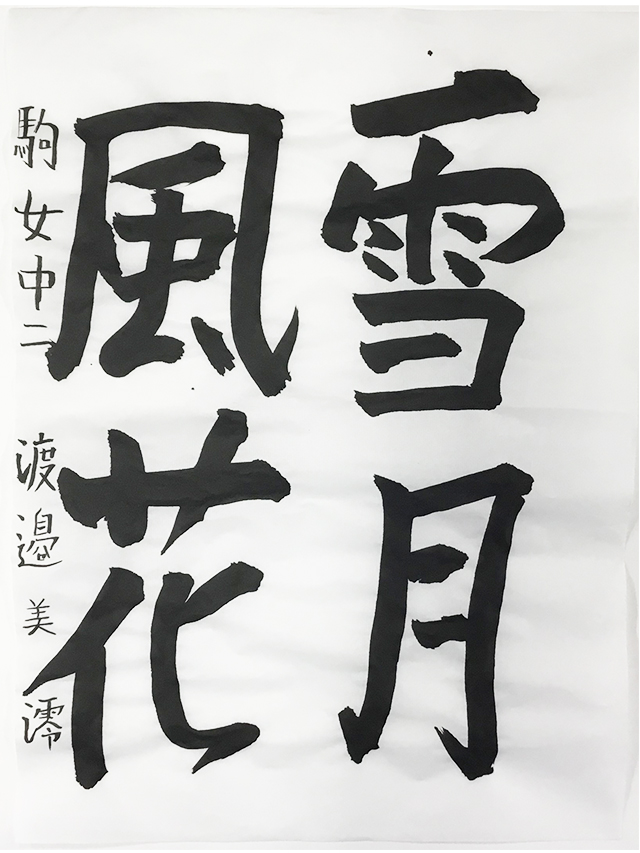 雪月
風花
駒女中二 渡邉美澪